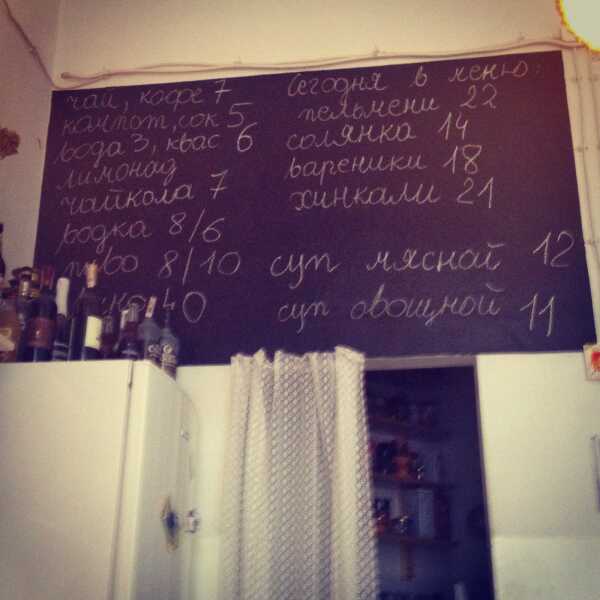 чай, кофе 7
компот, сок 5
вода 3, квас 6
лимонад
чайкола 7
водка 8/6
пиво 8/10
40
Сегодня в меню:
пельмени 22
солянка 14
вареники 18
хинкали 21
суп мясной 12
суп овощной 11